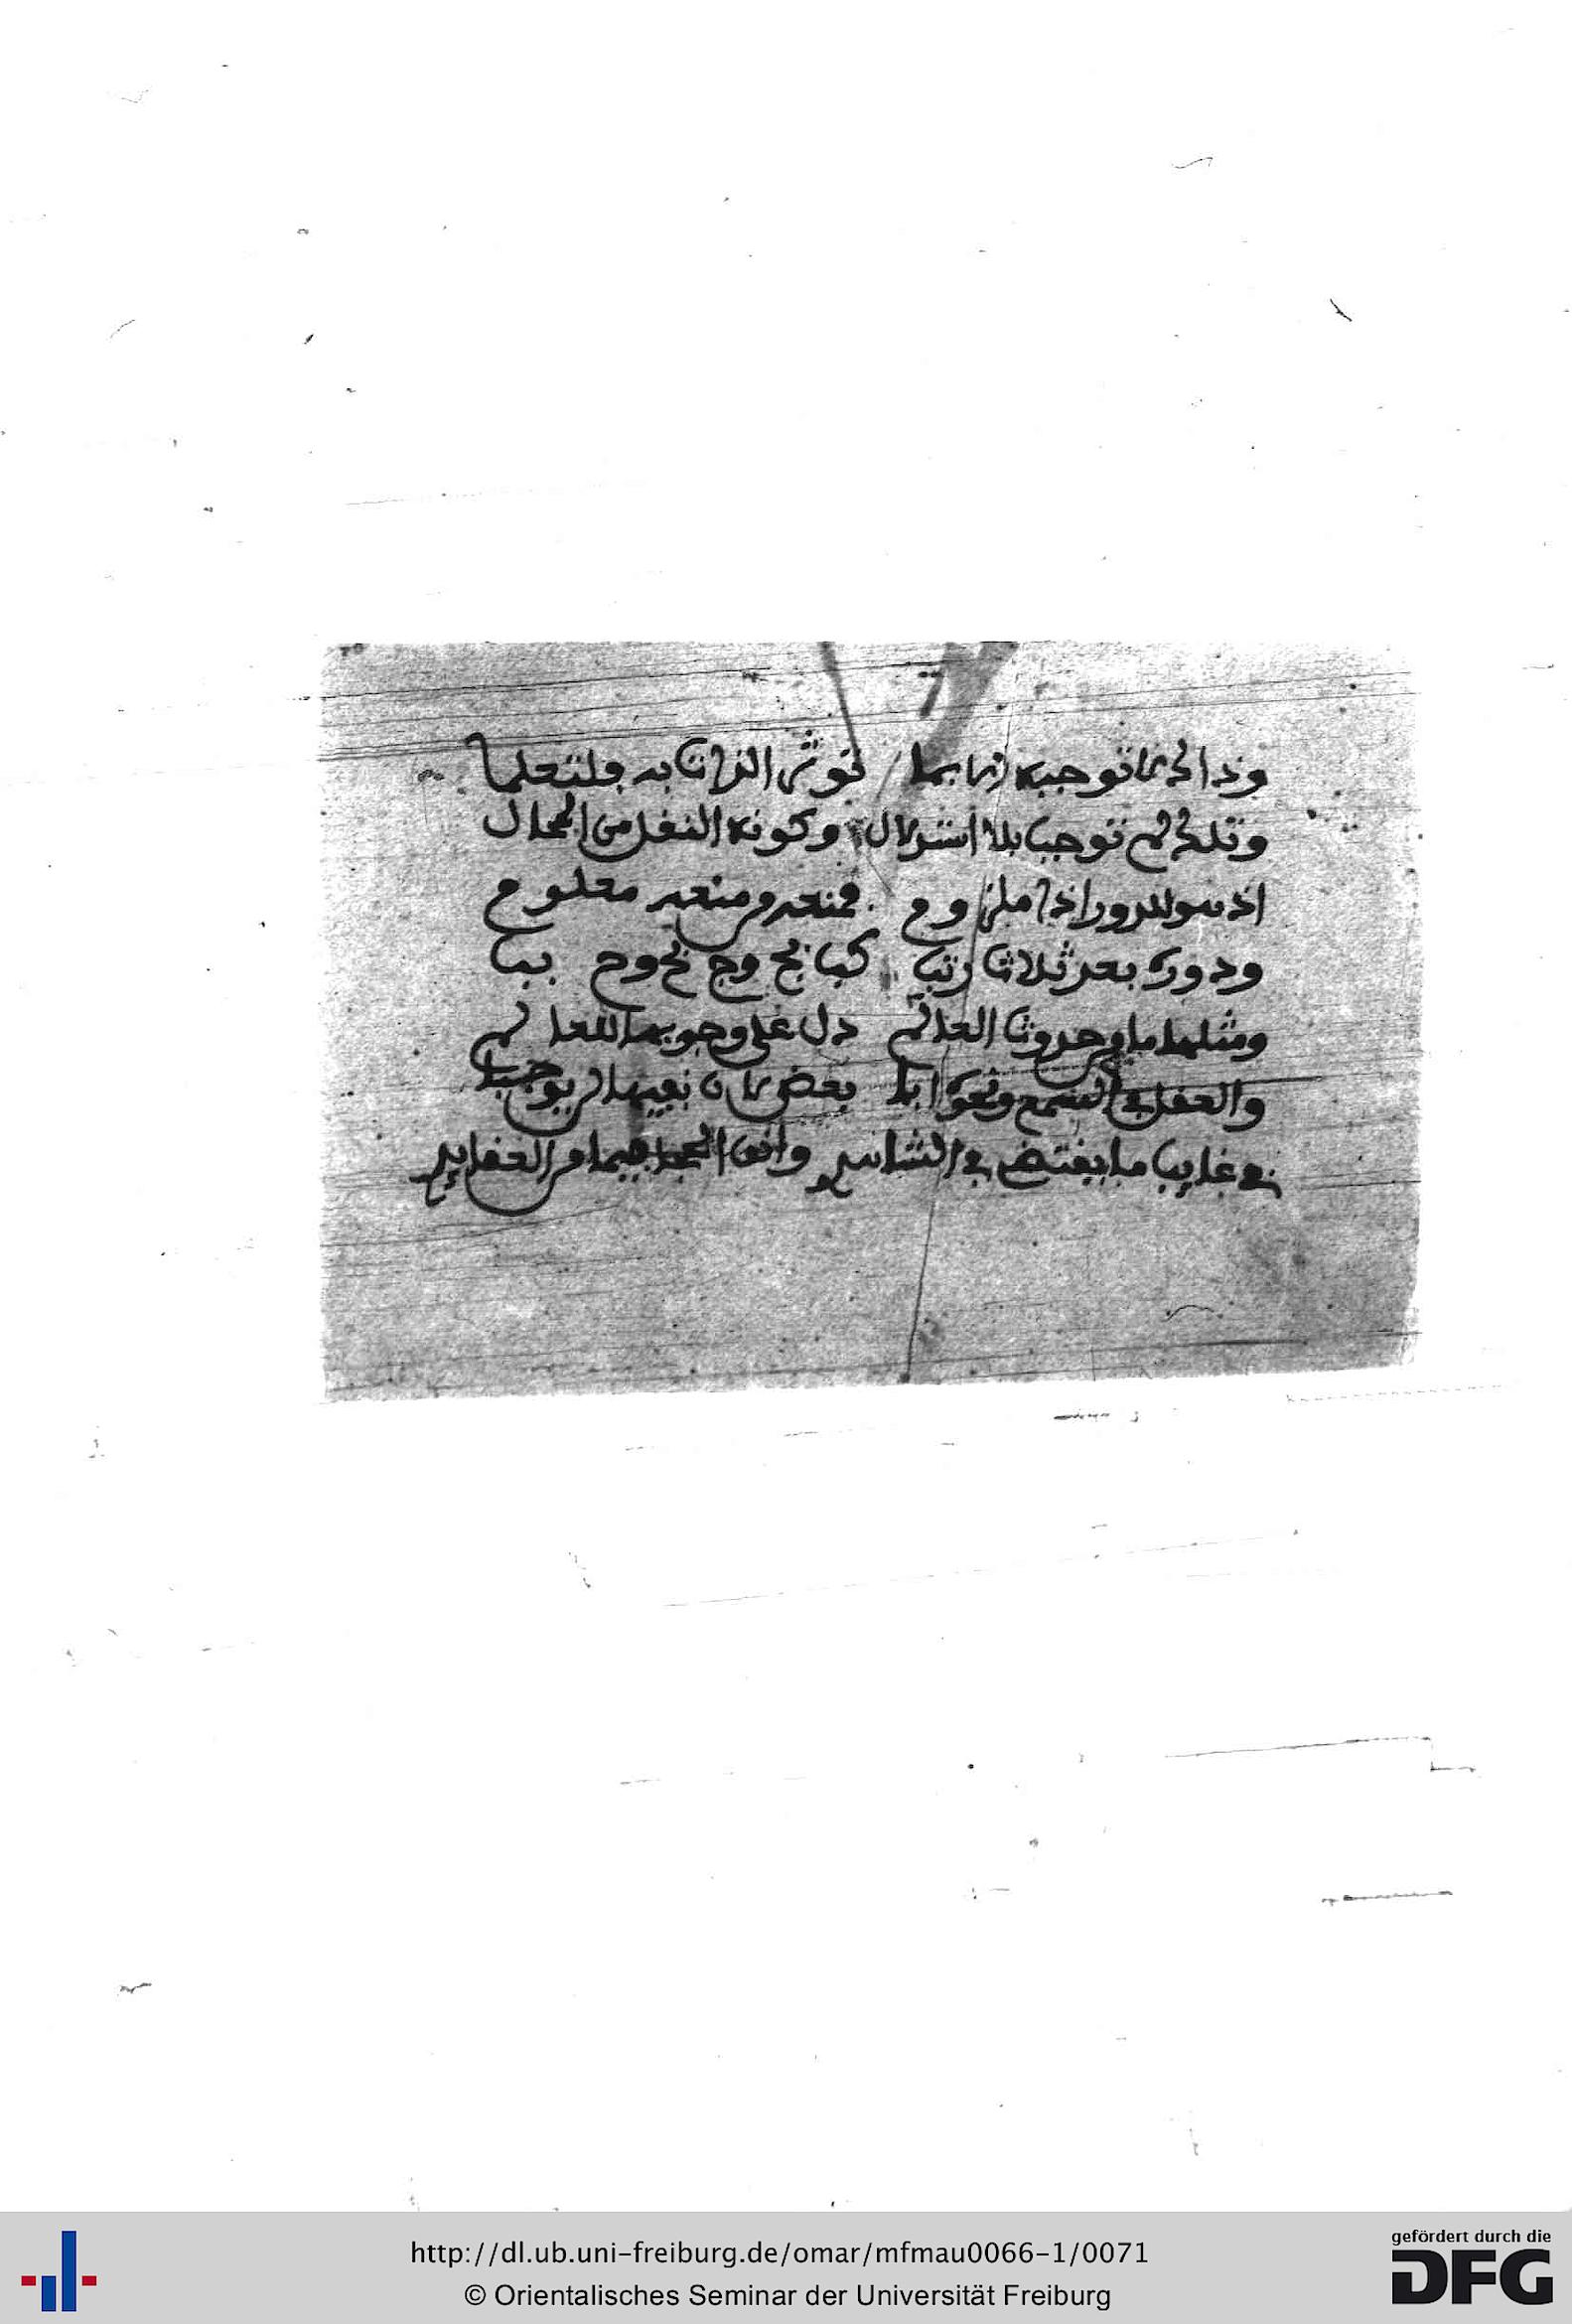 وذاك ما توجبه انما بما توثر الذات به فلتعلما
وتلك لم توجب بلا استدلال وكونه النفل من المحال
اذ هو للدور اذا ملزوم فمنعه من منعه معلوم
ودوره بعد ثلاث رتب كبا بج وج بج وح ببا
ومثلها ما من حدوث العالم دل على وجوبها للعالم
والعقل في السمع ونحو بعض كان نفيها لن يوجبا
في غايب ما يقتض في الشاهد وانف الحجا فيما من العقايد
http://dl.ub.uni-freiburg.de/omar/mfmau0066-1/0071
© Orientalisches Seminar der Universität Freiburg
gefördert durch die
DFG